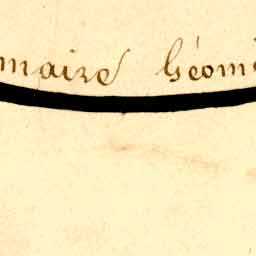 maire Géom